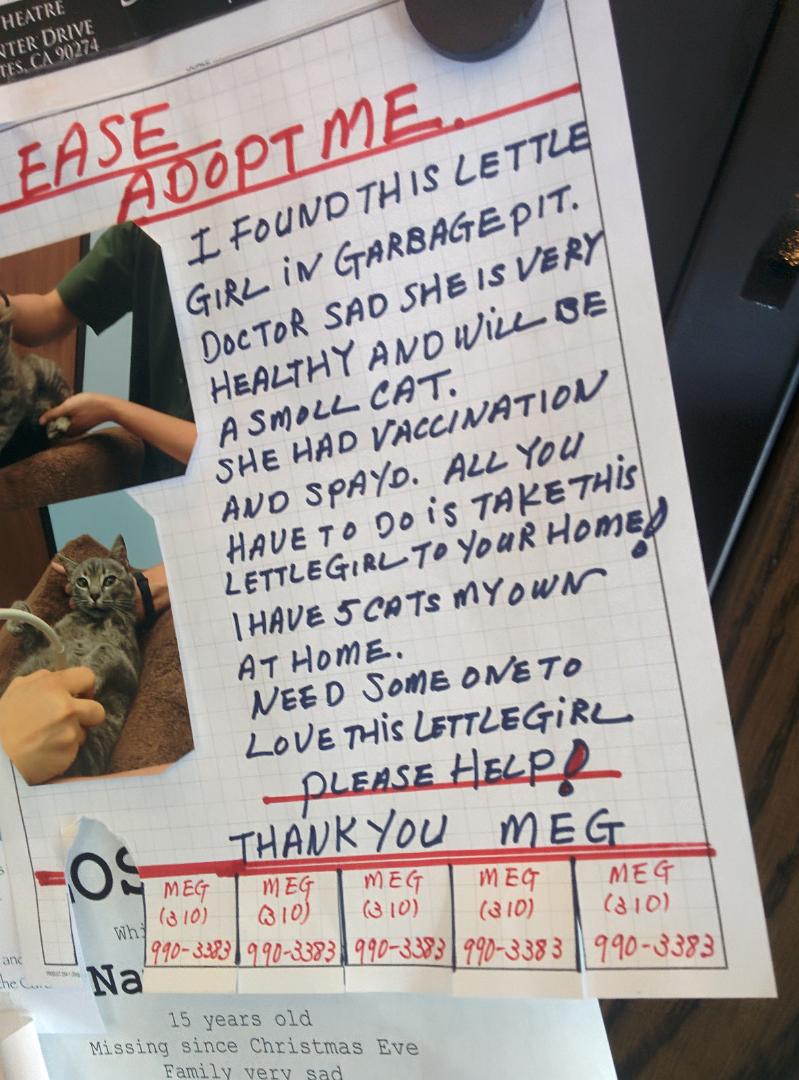 HEATRE
NTER DRIVE
TES, CA 90274
EASE
ADOPT ME.
I FOUND THIS LETTLE
GIRL IN GARBAGE PIT.
DOCTOR SAD SHE IS VERY
HEALTHY AND WILL BE
A SMOLL CAT.
SHE HAD VACCINATION
AND SPAYD. ALL YOU
HAVE TO DO IS TAKE THIS
LETTLE GIRL TO YOUR HOME!
I HAVE 5 CATS MY OWN
AT HOME.
NEED SOME ONE TO
LOVE THIS LETTLE GIRL.
PLEASE HELP!
THANK YOU MEG
MEG
(310)
990-3383
MEG
(310)
990-3383
MEG
(310)
990-3383
MEG
(310)
990-3383
MEG
(310)
990-3383
OS
Whi
Na
and
the
15 years old
Missing since Christmas Eve
Family very sad